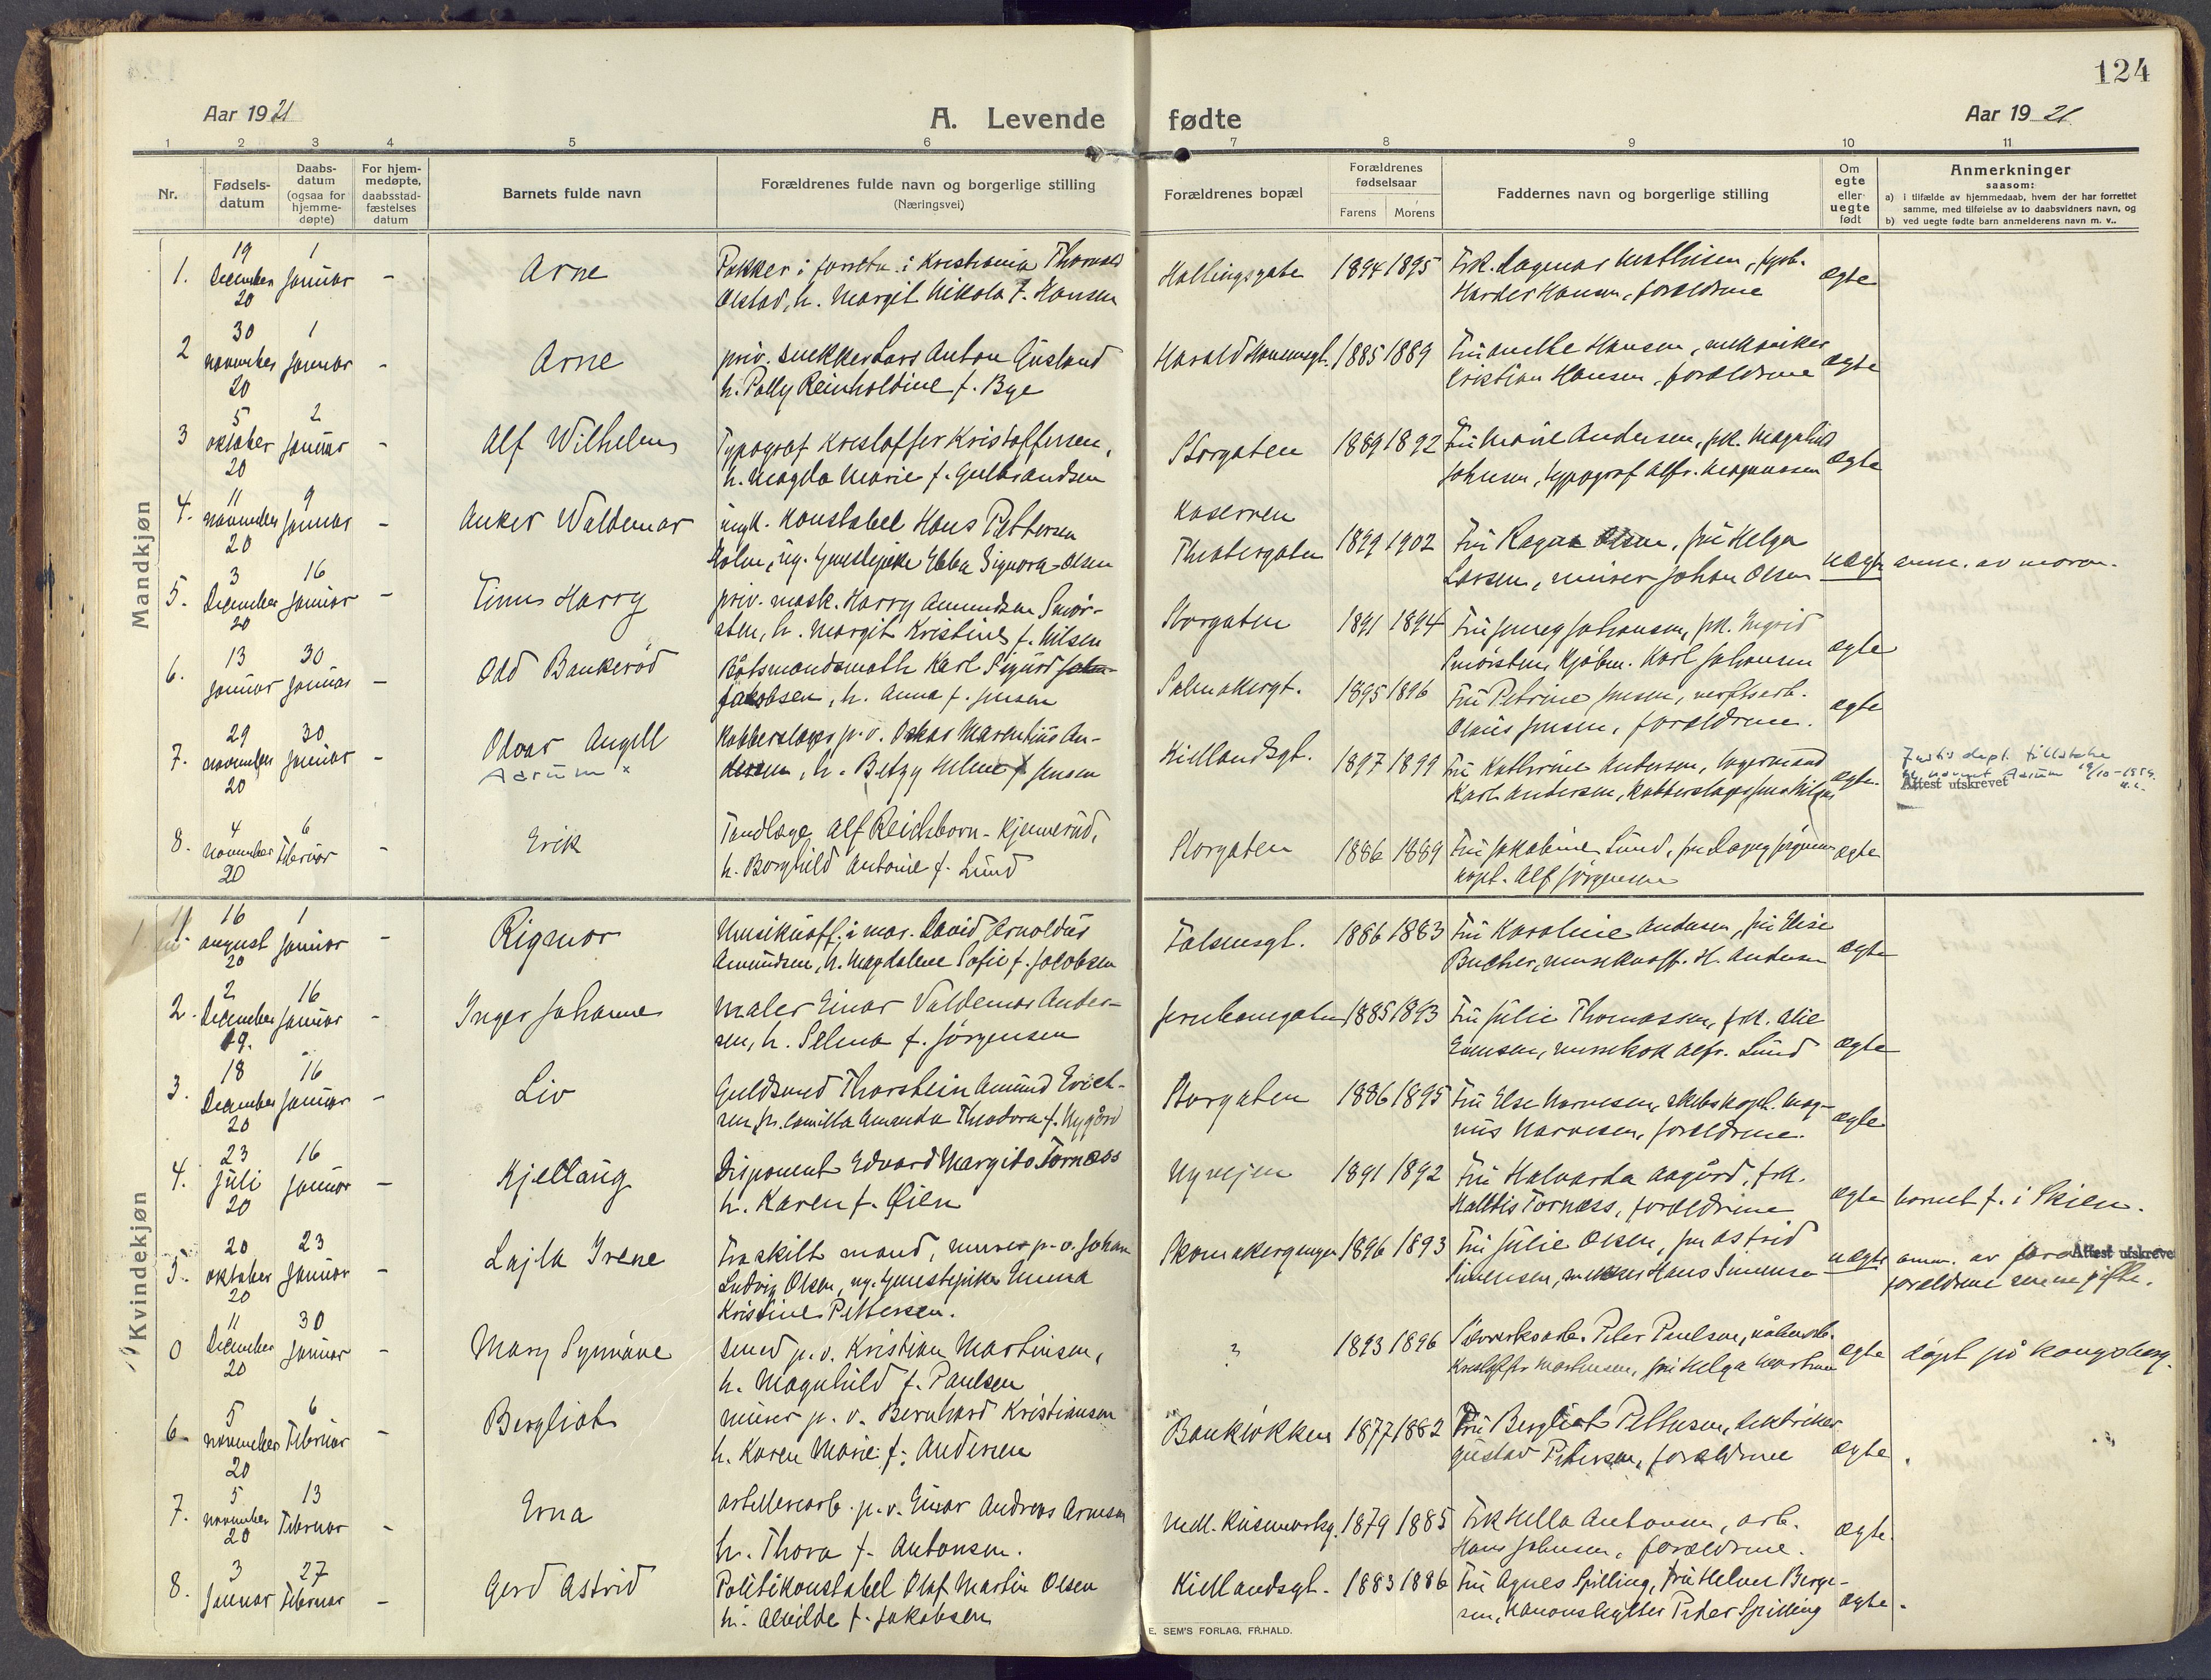 124
Aar 1921
A. Levende fødte
Aar 1921
1 2 3 4 5 6 7 8 9 10 11
Nr.
Fødsels-
datum
Daabs-
datum
(ogsaa for
hjemme-
døpte)
For hjem-
medøpte,
daabsstad-
fæstelses
datum
Barnets fulde navn
Forældrenes fulde navn og borgerlige stilling
(Næringsvei)
Forældrenes bopæl
Forældrenes
fødselsaar
Farens Morens
Faddernes navn og borgerlige stilling
Om
egte
eller
uegte
født
Anmerkninger
saasom:
a) i tilfælde av hjemmedaab, hvem der har forrettet
samme, med tilføielse av to daabsvidners navn, og
b) ved uegte fødte barn anmelderens navn m. v..
Mandkjøn
1. 19 December 20 1 Januar - Arne
Pakker i forretn. i Kristiania Thorvald
Olstad, h. Margit Nikola f. Hansen
Hallingsgate 1894 1895
Frk. Dagmar Mathisen,
Harder Hansen, forældrene
egte
2 30 november 20 1 Januar - Arne
priv. snekker Lars Anton Gusland
h. Polly Reinholdine f. Bye
Harald Haarfagresgt. 1885 1889
Fru Anethe Hansen, mekaniker
Kristian Hansen, forældrene
egte
3 5 oktober 20 2 Januar - Alf Wilhelm
Typograf Kristoffer Kristoffersen,
h. Magda Marie f. Gulbrandsen
Storgaten 1889 1892
Fru Marie Andersen, frk. Magnhild
Johnsen, typograf Alfr. Magnussen
egte
4. 11 november 20 9 Januar - Anker Waldemar
ungk. Konstabel Hans Pettersen
Holm, ug. tjenestepike Ebba Signora Olsen
Kasernen
Theatergaten 1899 1902
Fru Ragna Olsen, fru Helga
Larsen, murer Johan Olsen
uegte
anm. av moren.
5. 3 December 20 16 Januar - Finn Harry
priv. mask. Harry Amundsen Smør-
sten, h. Margit Kristine f. Nilsen
Storgaten 1891 1894
Fru Jenny Johansen, frk. Ingrid
Smørsten, kjøbm. Karl Johansen
egte
6. 13 Januar 30 Januar - Odd Bankerød
Båtsmandsmath Karl Sigurd
Jakobsen, h. Anna f. Jensen
Salmakergt. 1895 1896
Fru Petrine Jensen, verftsarb.
Olaus Jensen, forældrene.
egte
7. 29 november 20 30 Januar - Odvar Angell
Aarum x
Kobberslager p. v. Oskar Marentius An-
dersen, h. Betzy Helene f. Jensen
Kiellandsgt. 1897 1899
Fru Kathrine Andersen, lagermand
Karl Andersen, Kobberslager
egte.
Justis dept. tillatelse
navnet Aarum 19/10-1954.
Attest utskrevet
8. 4 november 20 6 Februar - Erik
Tandlæge Alf Reichborn-Kjennerud,
h. Borghild Antonie f. Lund
Storgaten 1886 1889
Fru Jakobine Lund, fru Dagny Jørgensen
kapt. Alf Jørgensen
egte
Kvindekjøn
1. 16 august 20 1 Januar - Rigmor
Musikuoff. i mar. David Arnoldus
Amundsen, h. Magdalene Sofie f. Jacobsen
Falsensgt. 1886 1883
Fru Karoline Andersen, fru Elise
Bucher, musikuoff. H. Andersen
egte
2. 2 December 19. 16 Januar - Inger Johanne
Maler Einar Valdemar Ander-
sen, h. Selma f. Jörgensen
Jernbanegaten 1885 1893
Fru Julie Thomassen, frk. Alie
Evensen, messekok Alfr. Lund
egte
3. 18 December 20 16 Januar - Liv
Guldsmed Thorstein Amund Erich-
sen, h. Camilla Amanda Theodora f. Nygård
Storgaten 1886 1895
Fru Else Narvesen, skibskapt. Mag-
nus Narvesen, forældrene.
egte
4. 23 Juli 20 16 Januar - Kjellaug
Disponent Edvard Margido Tornæss
h. Karen f. Øien
Nyvejen 1891 1892
Fru Halvarda Aagård, frk.
Halldis Tornæss, forældrene
egte
barnet f. i Skien.
5. 20 oktober 20 23 Januar - Lajla Irene
Fraskilt mand, murer p. v. Johan
Ludvig Olsen, ug. tjenestepike Emma
Kristine Pettersen.
Skomakergangen 1896 1893
Fru Julie Olsen, fru Astrid
Simensen, murer Hans Simensen
uegte
anm. av
Attest utskrevet
forældrene senere gifte.
0 11 December 20 30 Januar - Mary Synnöve
Smed p. v. Kristian Martinsen,
h. Magnhild f. Paulsen
? 1893 1896
Sølvverksarb. Peter Paulsen, våbenarb.
Kristoffer Martinsen, fru Helga Martinsen
egte
døpt på Kongsberg.
6. 5 november 20 6 Februar - Bergliot
murer p. v. Bernhard Kristiansen
h. Karen Marie f. Andersen
Bankløkken 1877 1882
Fru Bergliot Pettersen, elektriker
Gustav Petersen, forældrene
egte.
7. 5 november 20 13 Februar - Erna
artilleriarb. p. v. Einar Andreas Arnesen
h. Thora f. Antonsen.
Nedl. Keisemarksg. 1879 1885
Frk. Hella Antonsen, arb.
Hans Johnsen, forældrene.
egte.
8. 3 Januar 27 Februar - Gerd Astrid
Politikonstabel Olaf Martin Olsen
h. Alvilde f. Jakobsen
Kiellandsgt. 1883 1886
Fru Agnes Spilling, fru Helene Berge-
sen, Kanonskytter Peder Spilling
egte.
E. SEM'S FORLAG, FR.HALD.